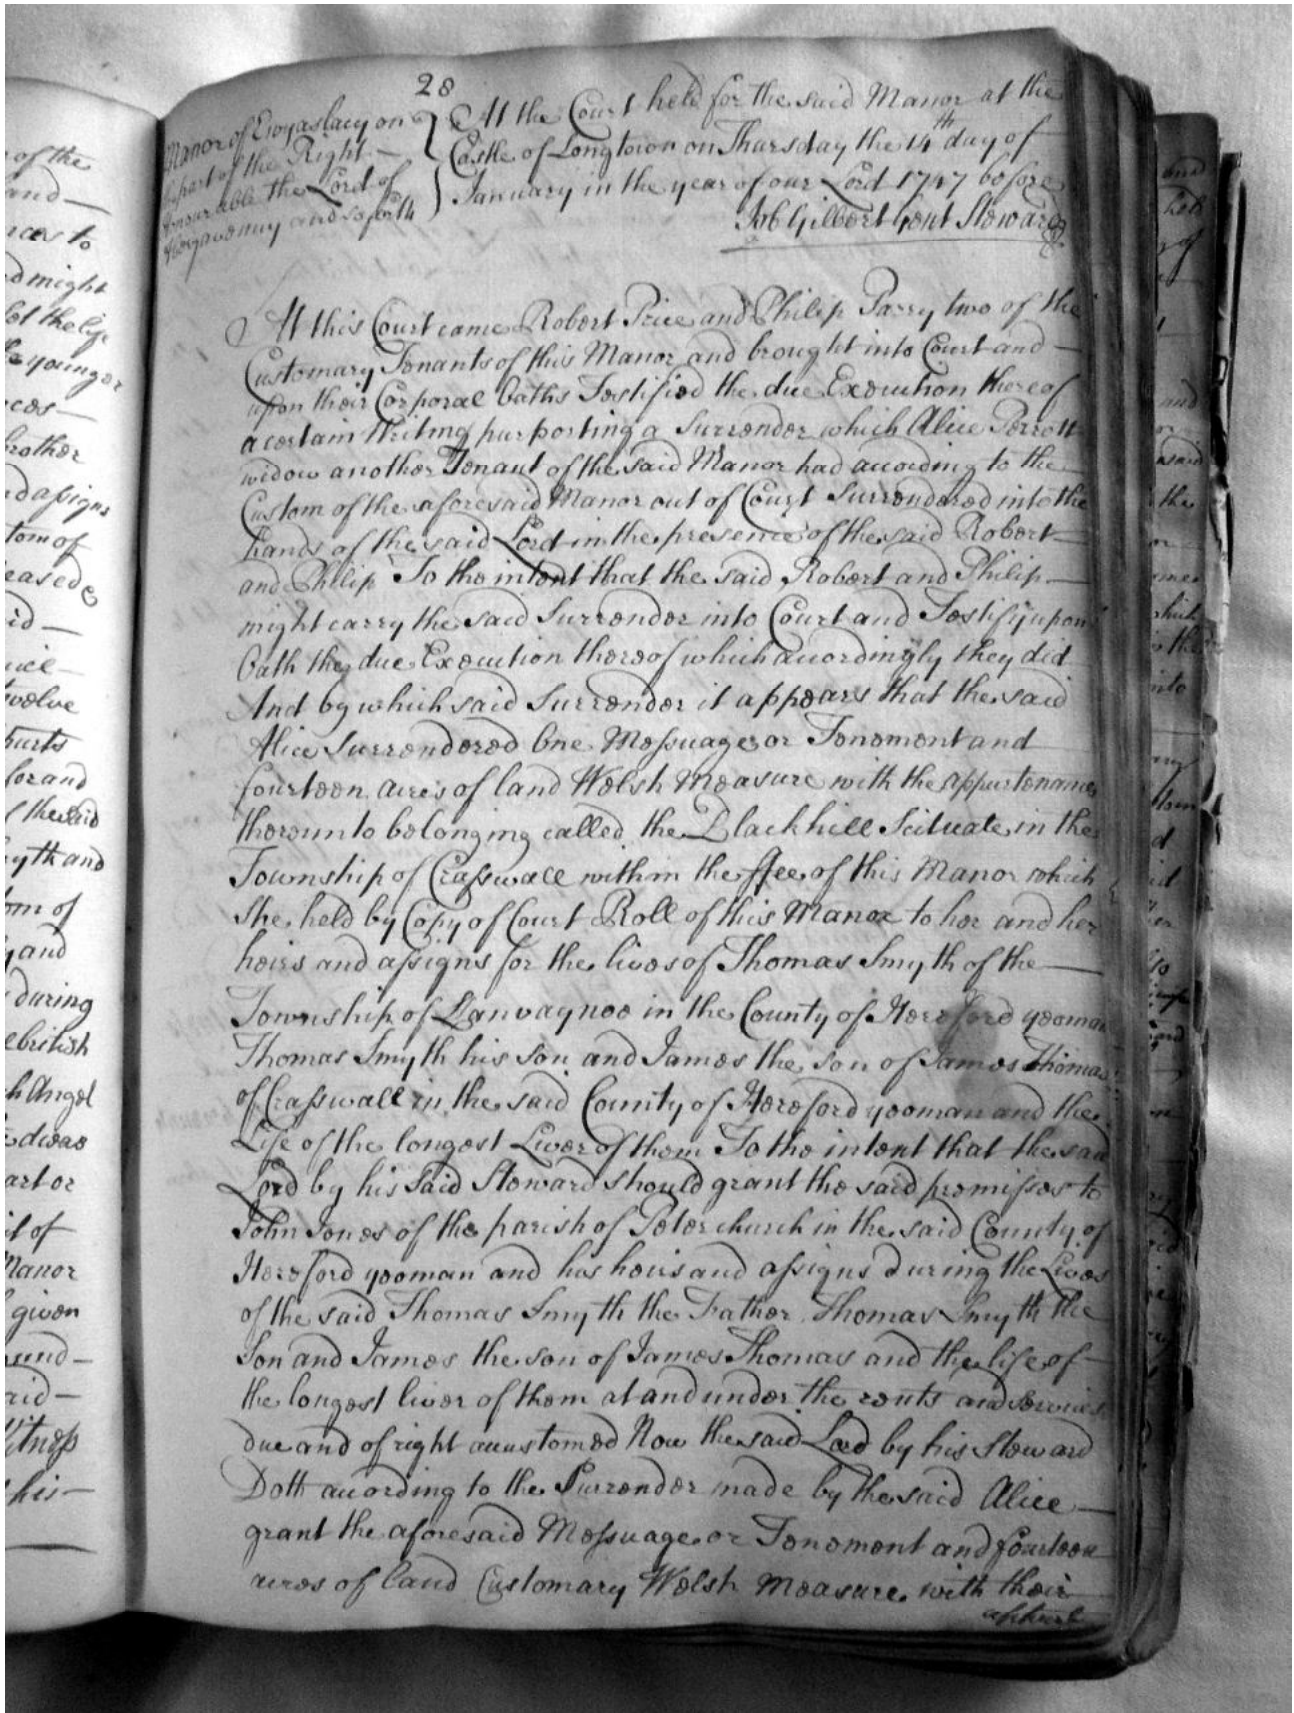 28
Manor of Ewyaslacy on
part of the Right —
Honourable the Lord of
Abergavenny and so forth
At the Court held for the said Manor at the
Castle of Longtown on Thursday the 14th day of
January in the year of our Lord 1747 before
Job Gilbert Gent Steward
At this Court came Robert Price and Philip Parry two of the
Customary Tenants of this Manor and brought into Court and —
upon their Corporal Oaths Testified the due Execution thereof
a certain Writing purporting a Surrender which Alice Perrott
widow another Tenant of the said Manor had according to the
Custom of the aforesaid Manor out of Court Surrendered into the
hands of the said Lord in the presence of the said Robert —
and Philip To the intent that the said Robert and Philip —
might carry the said Surrender into Court and Testify upon
Oath the due Execution thereof which accordingly they did
And by which said Surrender it appears that the said
Alice Surrendered One Messuage or Tenement and —
fourteen acres of land Welsh Measure with the appurtenances
thereunto belonging called the Blackhill Scituate in the
Township of Crasswall within the ffee of this Manor which
She held by Copy of Court Roll of this Manor to her and her
heirs and assigns for the lives of Thomas Smyth of the —
Township of Llanvaynoe in the County of Hereford yeoman
Thomas Smyth his son and James the son of James Thomas
of Crasswall in the said County of Hereford yeoman and the
Life of the longest Liver of them To the intent that the said
Lord by his said Steward should grant the said premisses to
John Jones of the parish of Peterchurch in the said County of
Hereford yeoman and his heirs and assigns during the Lives
of the said Thomas Smyth the Father Thomas Smyth the
Son and James the son of James Thomas and the life of —
the longest liver of them at and under the rents and services
due and of right accustomed Now the said Lord by his Steward
Doth according to the Surrender made by the said Alice —
grant the aforesaid Messuage or Tenement and fourteen
acres of land Customary Welsh Measure with their
appurt
of the
and —
to
might
the life
the younger
brother
and assigns
tom of
eased
id —
twelve
for and
the said
yth and
om of
and
during
british
h Angel
art or
it of
Manor
given
aid —
Witness
his —